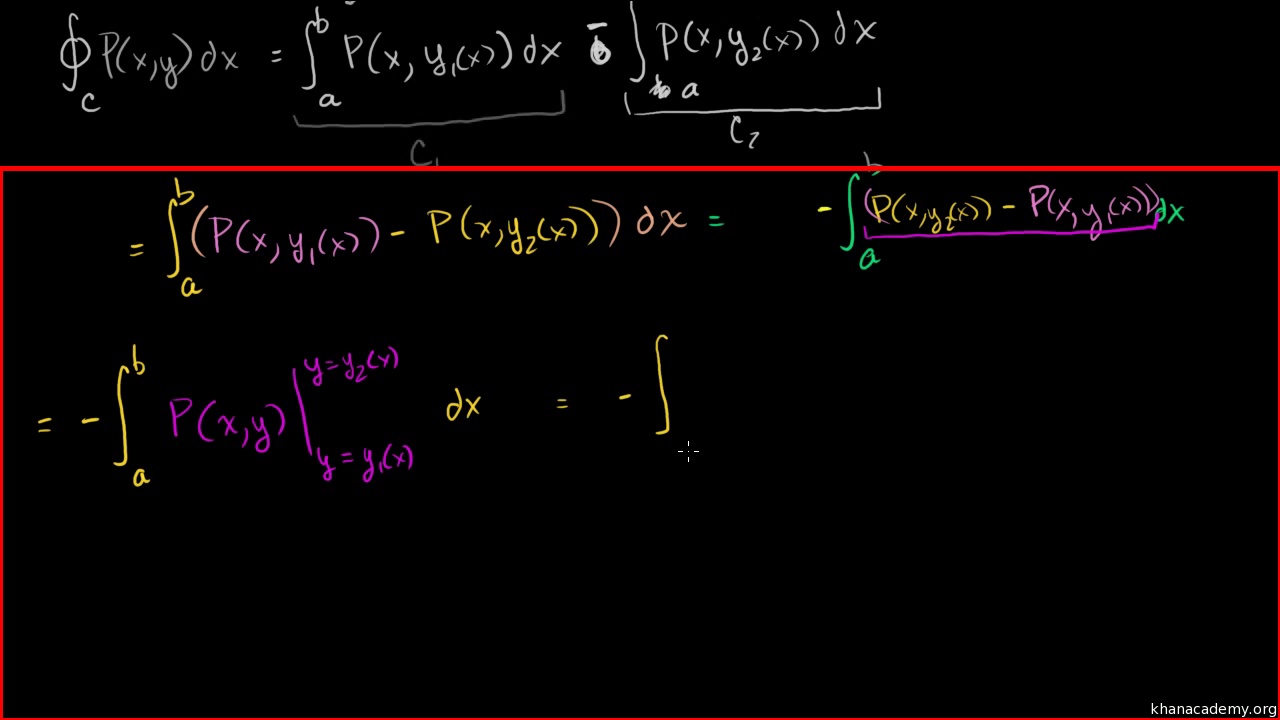 ∮_C P(x,y) dx = ∫_a^b P(x, y₁(x)) dx - ∫_a P(x, y₂(x)) dx
C₁ C₂
= ∫_a^b (P(x, y₁(x)) - P(x, y₂(x))) dx = - ∫_a^b (P(x, y₂(x)) - P(x, y₁(x))) dx
= - ∫_a^b P(x,y) |_{y = y₁(x)}^{y = y₂(x)} dx = - ∫
khanacademy.org